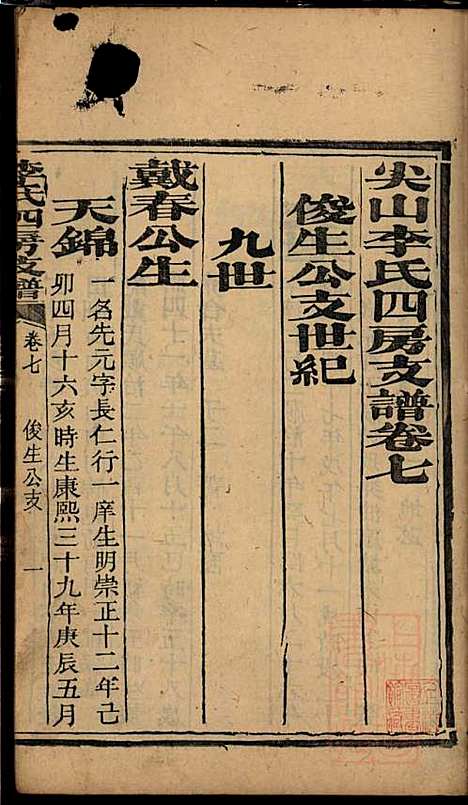 尖山李氏四房支譜卷七
俊生公支世紀
九世
戴春公生
天錦
一名先元字長仁行一庠生明崇正十二年己
卯四月十六亥時生康熙三十九年庚辰五月
李氏四房支譜
卷七
俊生公支
一